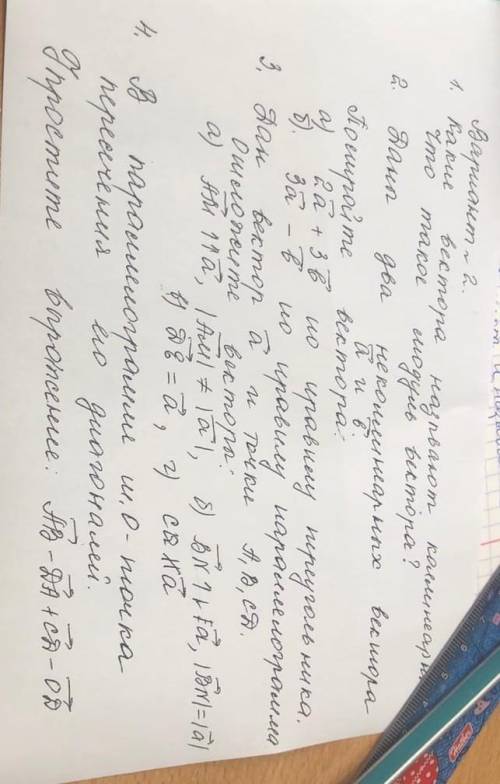 Вариант ~ 2.
1. Какие вектора называют коллинеарн
Что такое модуль вектора?
2. Дана два неколлинеарных вектора
ā и b̄
Постройте вектора:
а) 2ā + 3b̄ по правилу треугольника.
б) 3ā - b̄ по правилу параллелограмма
3. Дан вектор ā и точки А, В, С, D.
Отложите вектора:
а) AM ↑↑ ā, |AM| ≠ |ā|, б) BN ↑↓ ā, |BN| = |ā|
в) DE = ā, г)
4. В параллелограмме т. О - точка
пересечения его диагоналей.
Упростите выражение: AB - DA + CD - OD